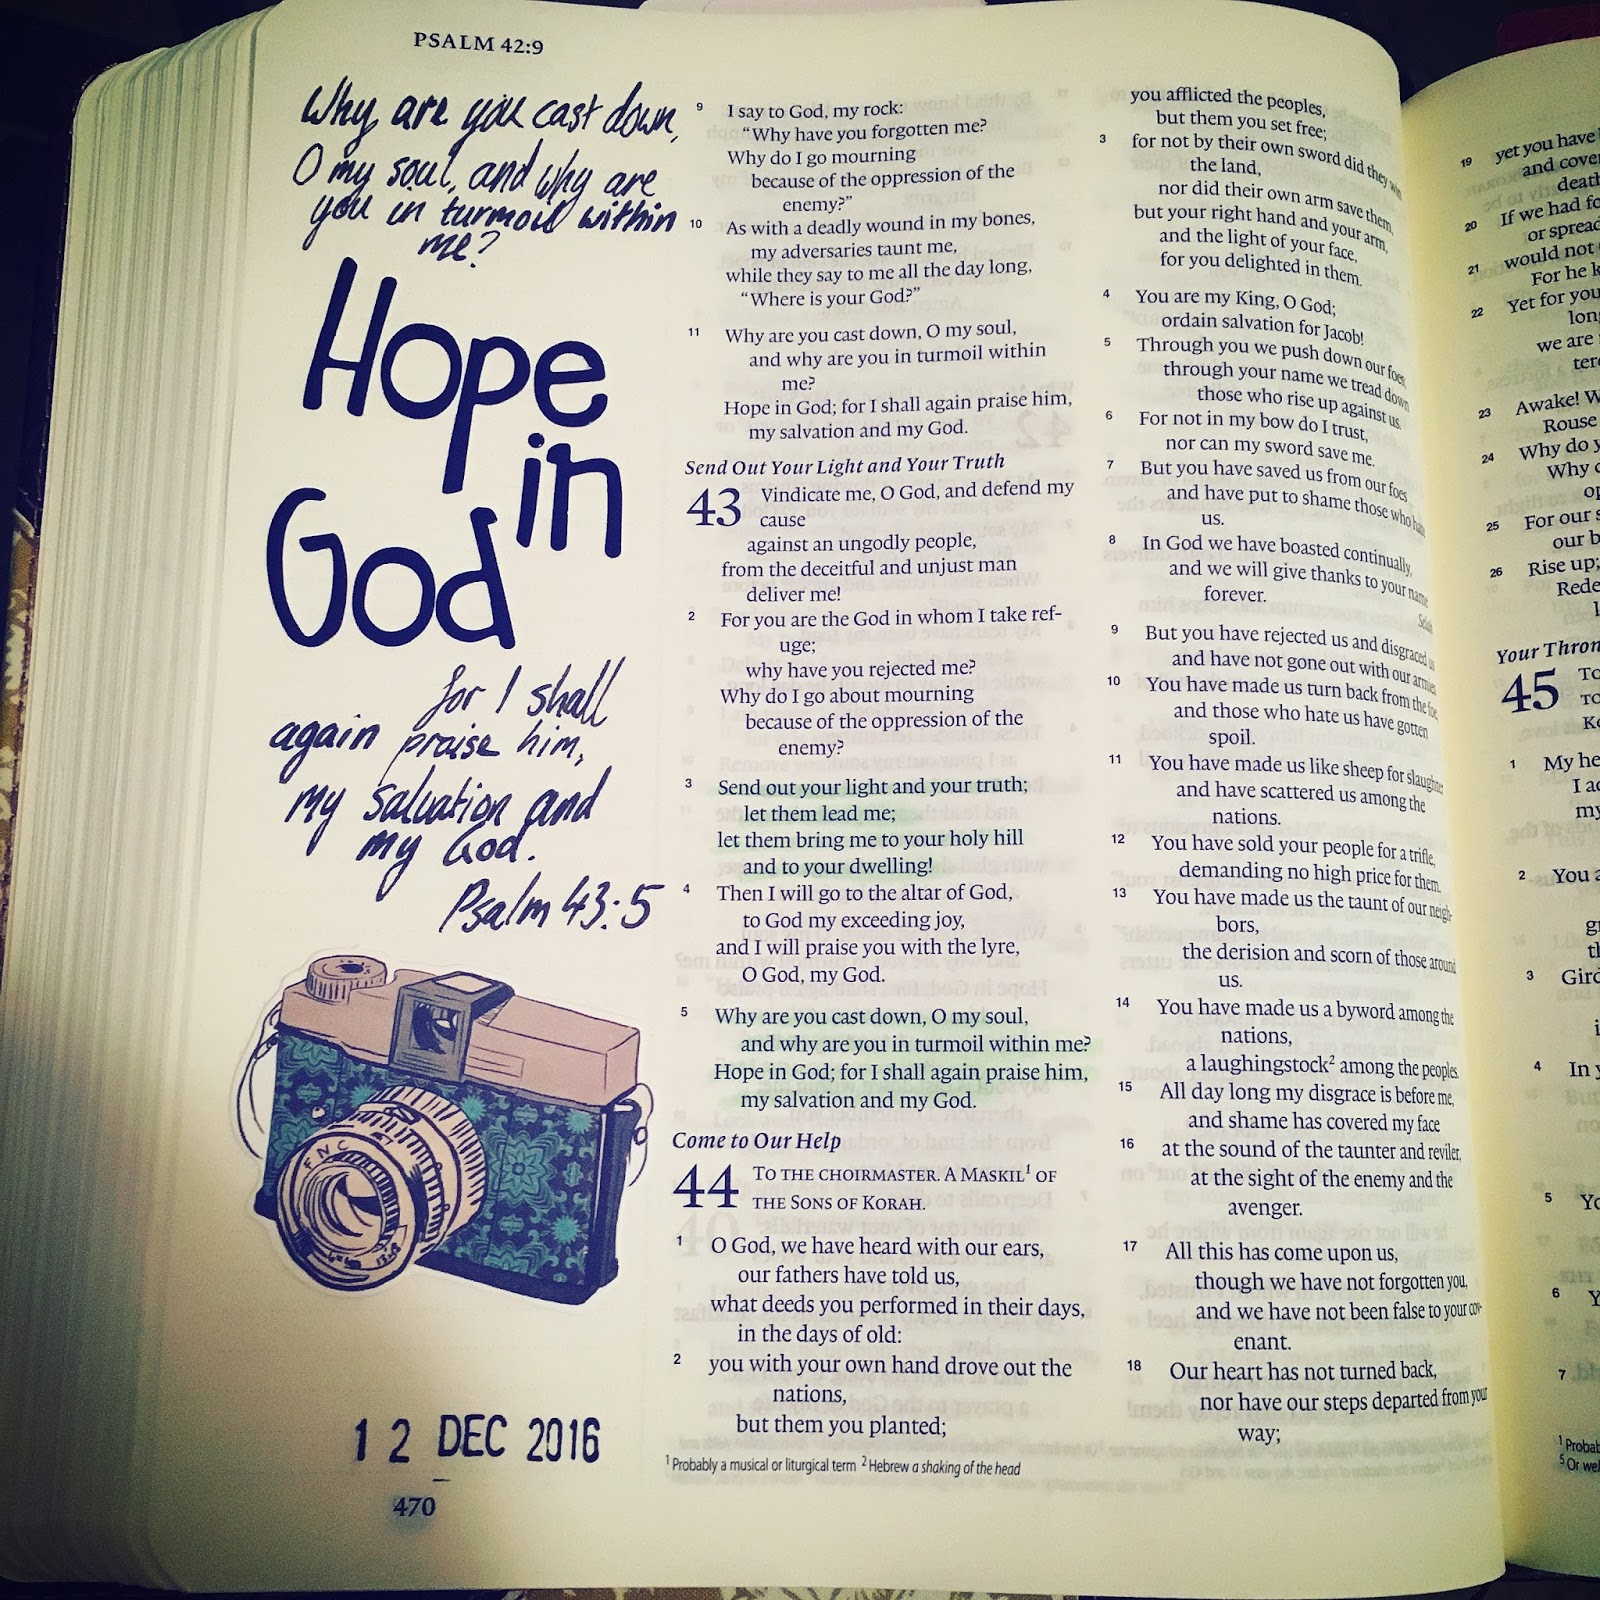 PSALM 42:9
Why are you cast down,
O my soul, and why are
you in turmoil within
me?
Hope
in
God
for I shall
again praise him,
my salvation and
my God.
Psalm 43:5
FNC
12 DEC 2016
470
9 I say to God, my rock:
“Why have you forgotten me?
Why do I go mourning
because of the oppression of the
enemy?”
10 As with a deadly wound in my bones,
my adversaries taunt me,
while they say to me all the day long,
“Where is your God?”
11 Why are you cast down, O my soul,
and why are you in turmoil within
me?
Hope in God; for I shall again praise him,
my salvation and my God.
Send Out Your Light and Your Truth
43 Vindicate me, O God, and defend my
cause
against an ungodly people,
from the deceitful and unjust man
deliver me!
2 For you are the God in whom I take ref-
uge;
why have you rejected me?
Why do I go about mourning
because of the oppression of the
enemy?
3 Send out your light and your truth;
let them lead me;
let them bring me to your holy hill
and to your dwelling!
4 Then I will go to the altar of God,
to God my exceeding joy,
and I will praise you with the lyre,
O God, my God.
5 Why are you cast down, O my soul,
and why are you in turmoil within me?
Hope in God; for I shall again praise him,
my salvation and my God.
Come to Our Help
44 TO THE CHOIRMASTER. A MASKIL1 OF
THE SONS OF KORAH.
1 O God, we have heard with our ears,
our fathers have told us,
what deeds you performed in their days,
in the days of old:
2 you with your own hand drove out the
nations,
but them you planted;
you afflicted the peoples,
but them you set free;
3 for not by their own sword did they win
the land,
nor did their own arm save them,
but your right hand and your arm,
and the light of your face,
for you delighted in them.
4 You are my King, O God;
ordain salvation for Jacob!
5 Through you we push down our foes;
through your name we tread down
those who rise up against us.
6 For not in my bow do I trust,
nor can my sword save me.
7 But you have saved us from our foes
and have put to shame those who hate
us.
8 In God we have boasted continually,
and we will give thanks to your name
forever.
Selah
9 But you have rejected us and disgraced us
and have not gone out with our armies.
10 You have made us turn back from the foe,
and those who hate us have gotten
spoil.
11 You have made us like sheep for slaughter
and have scattered us among the
nations.
12 You have sold your people for a trifle,
demanding no high price for them.
13 You have made us the taunt of our neigh-
bors,
the derision and scorn of those around
us.
14 You have made us a byword among the
nations,
a laughingstock2 among the peoples.
15 All day long my disgrace is before me,
and shame has covered my face
16 at the sound of the taunter and reviler,
at the sight of the enemy and the
avenger.
17 All this has come upon us,
though we have not forgotten you,
and we have not been false to your cov-
enant.
18 Our heart has not turned back,
nor have our steps departed from your
way;
1 Probably a musical or liturgical term 2 Hebrew a shaking of the head
19 yet you have
and
20 If we had
or
21 would not
For he
22 Yet for you
we are
23 Awake!
Rouse
24 Why do
Why
25 For our
our
26 Rise up;
Your
45
1 My
I
my
2 You
3
4 In
5
6
7
1
5 Or